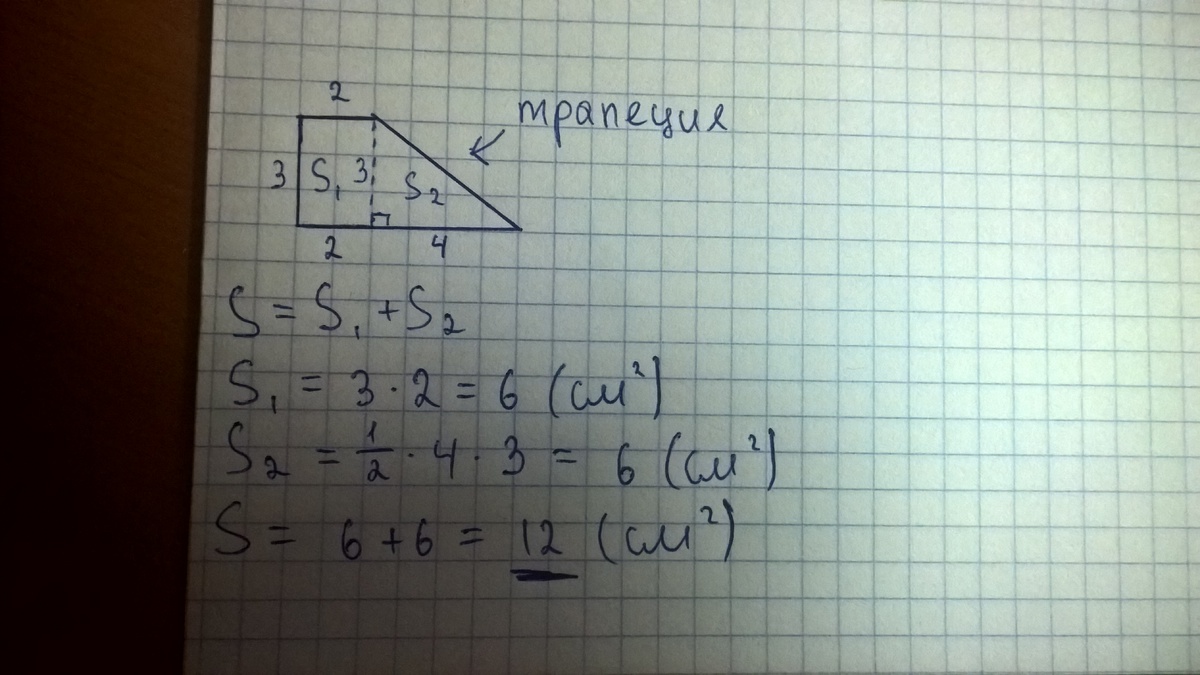 2
трапеция
3 S₁ 3 S₂
2 4
S = S₁ + S₂
S₁ = 3 · 2 = 6 (см²)
S₂ = 1/2 · 4 · 3 = 6 (см²)
S = 6 + 6 = 12 (см²)